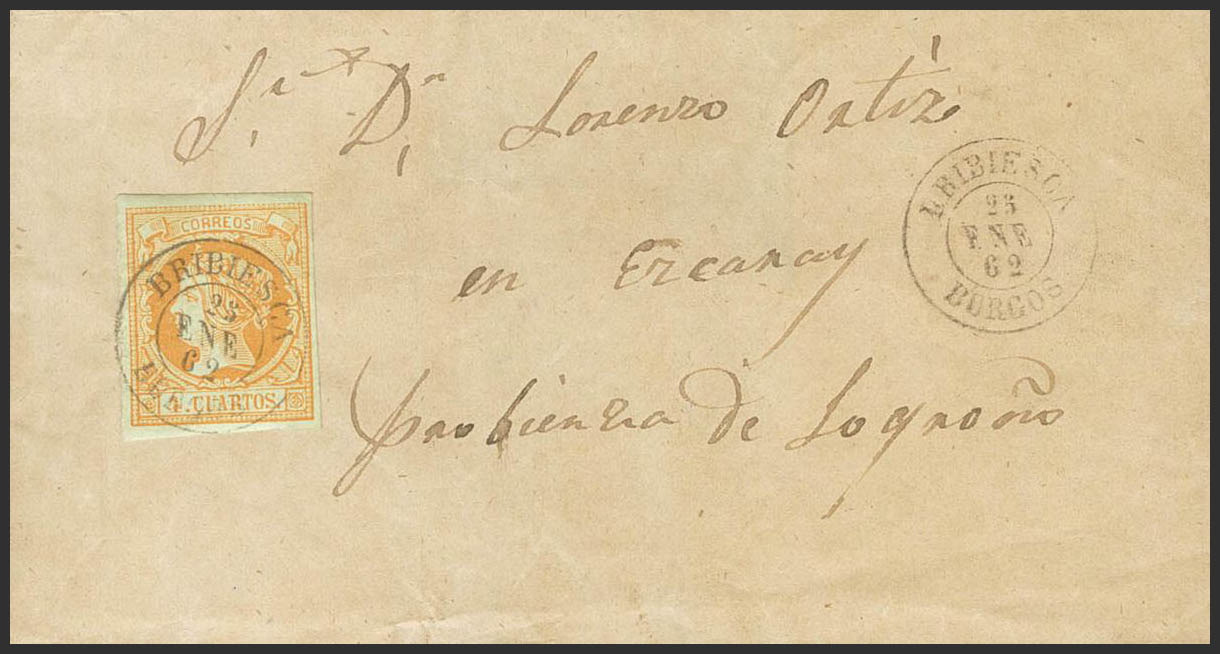 Sr. Dn. Lorenzo Ortiz
en Ezcaray
probienza de Logroño
CORREOS
4 CUARTOS
BRIBIESCA
23
ENE
62
BRIBIESCA
23
ENE
62
BURGOS